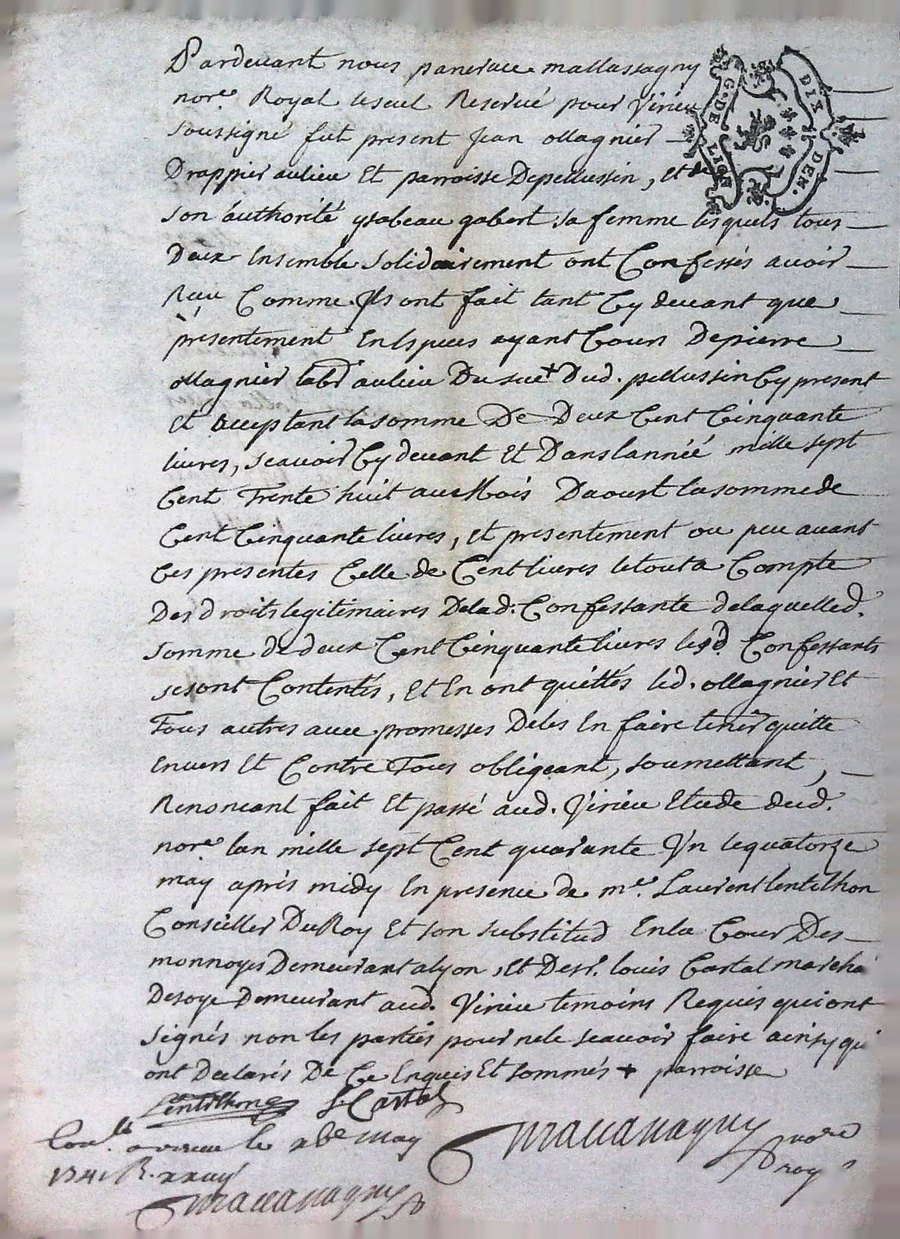 Pardevant nous pancrace mallassagny
nore. Royal le seul Reservé pour Virieu
soussigné fut present Jean ollagnier
Drappier au lieu Et parroisse De pellussin, et de
son authorité ysabeau gabert sa femme lesquels tous
Deux Ensemble solidairement ont Confessés avoir
Reçu Comme Ils ont fait tant Cy devant que
présentement En Especes ayant Cours De pierre
ollagnier labr. au lieu Du + Dud. pellussin Cy present
Et acceptant la somme De Deux Cent Cinquante
livres, scavoir Cy devant Et Dans lannéé mille sept
Cent Trente huit au Mois Daoust la somme de
Cent Cinquante livres, et présentement ou peu avant
Ces presentes Celle de Cent livres le tout a Compte
Des droits legitimaires De lad. Confessante de laquelle d.
somme de deux Cent Cinquante livres lesd. Confessants
se sont Contentés, Et En ont quittés led. ollagnier Et
Tous autres avec promesses De les En faire tenir quitte
Envers Et Contre Tous obligeant, soumettant,
Renoncant fait Et passé aud. Virieu Etude dud.
nore. lan mille sept Cent quarante Un le quatorze
may après midy En presence de me. Laurent lentilhon
Conseiller Du Roy Et son substitud En la Cour Des
monnoyes Demeurant a lyon, Et De sr. louis Cartal marcha
De soye Demeurant aud. Virieu temoins Requis qui ont
signés non les parties pour ne le scavoir faire ainsy qu
ont Declarés De Ce Enquis Et sommés + parroisse
Lentilhon L Cartal
Conllé a virieu le may
1741 R.
Mallassagny nore
roy
Mallassagny
G. DE LION
DIX DEN.